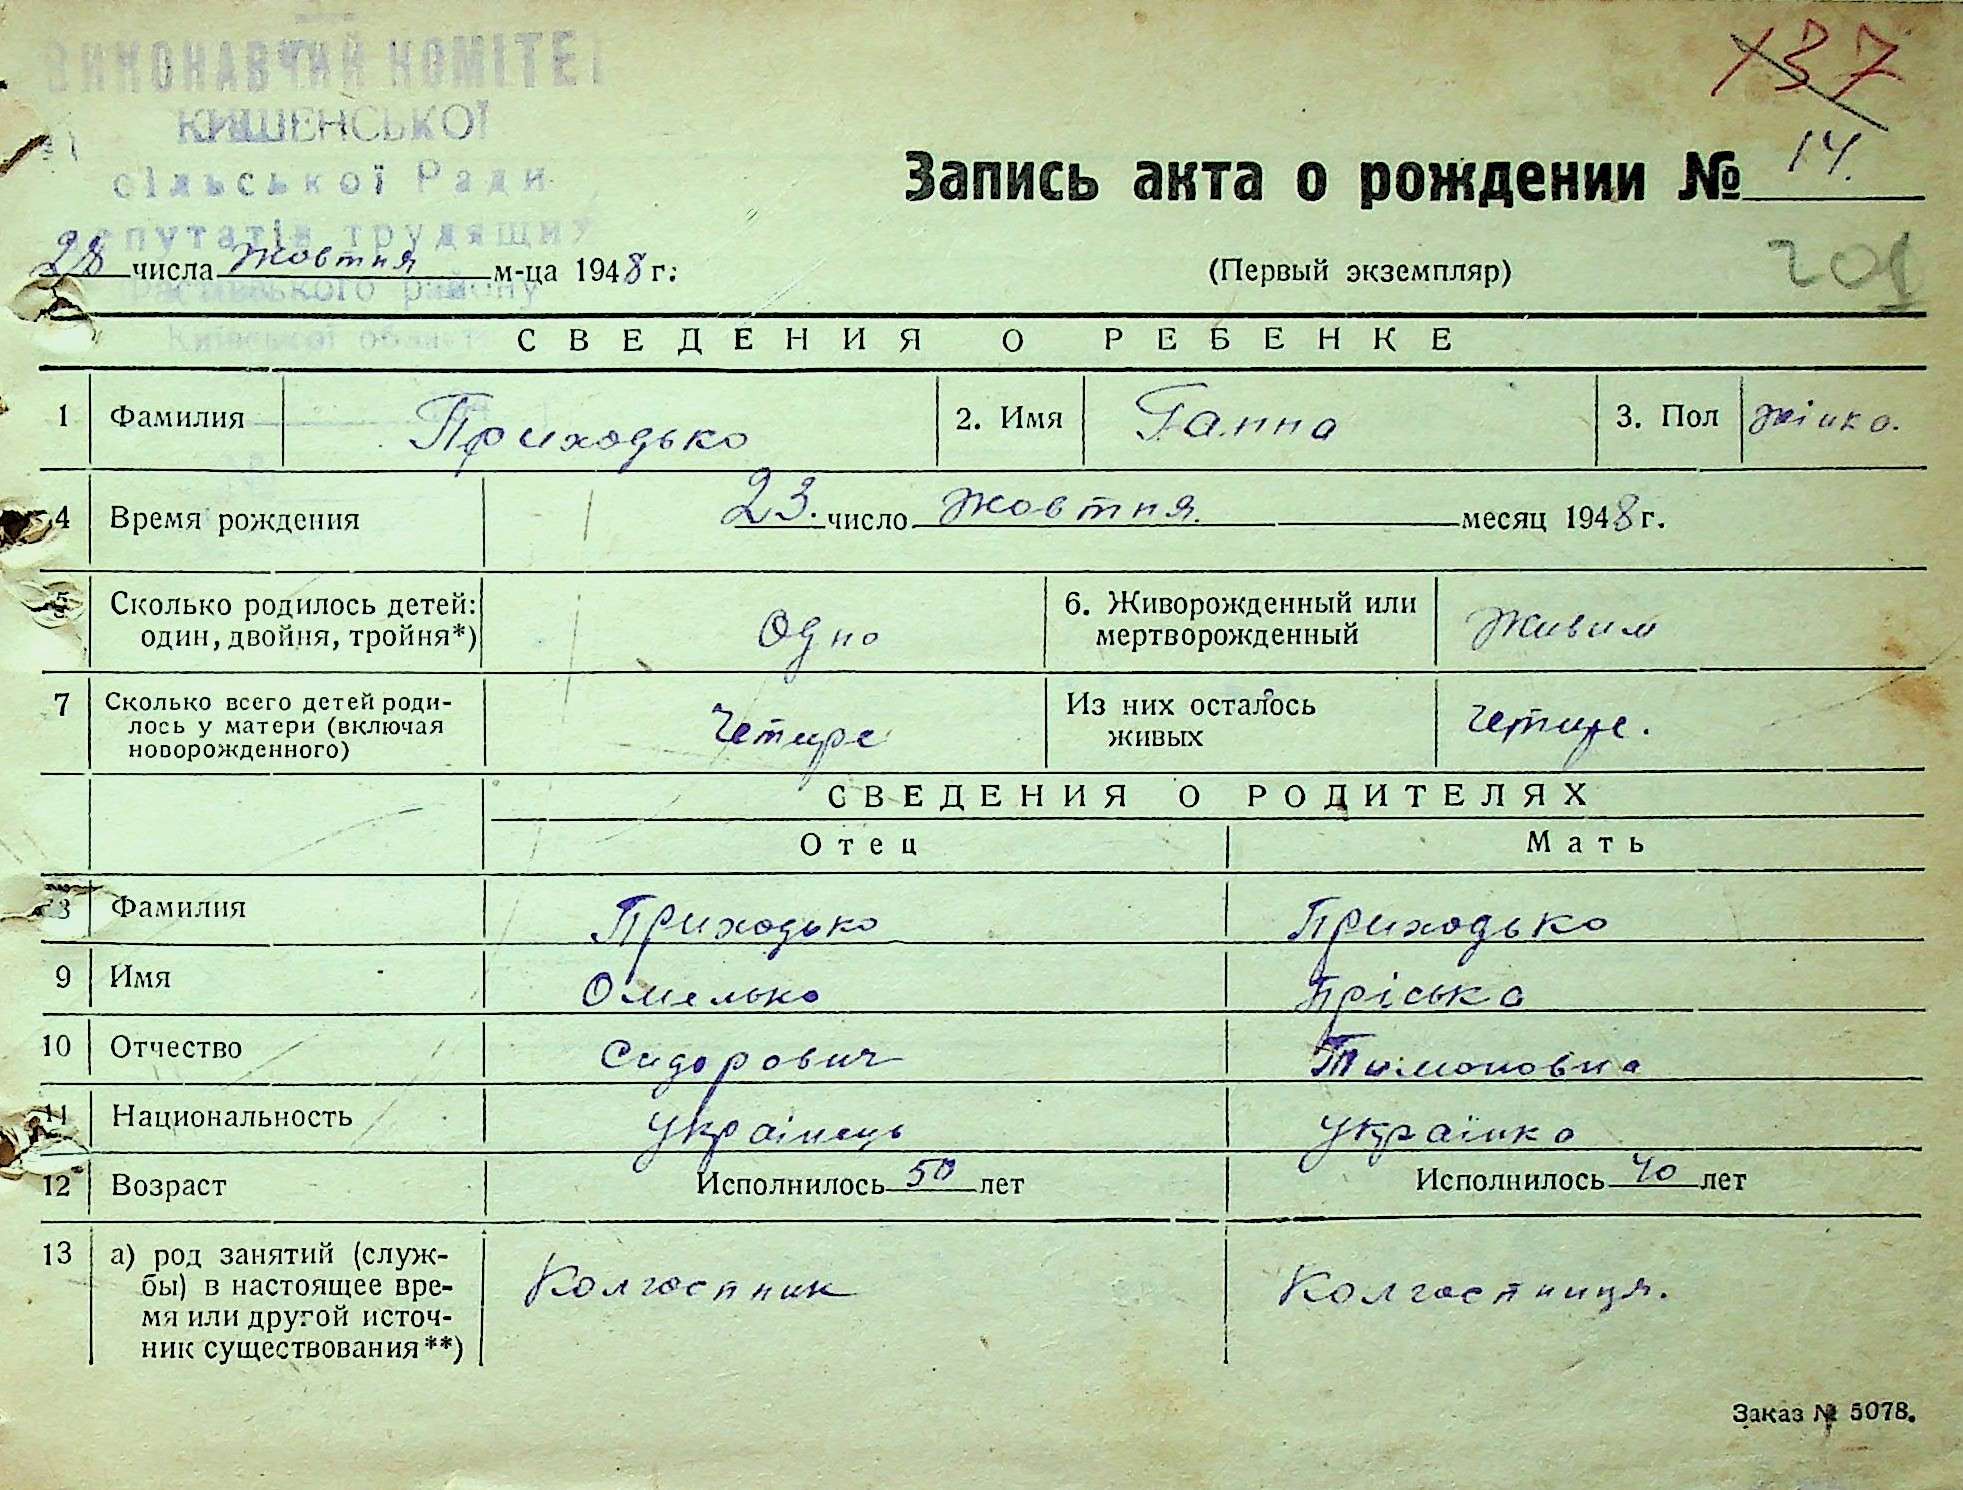 ВИКОНАВЧИЙ КОМІТЕТ
КИШЕНСЬКОЇ
сільської Ради
депутатів трудящих
району
Київської області
137
Запись акта о рождении № 14.
28 числа жовтня м-ца 1948 г.
(Первый экземпляр)
201
СВЕДЕНИЯ О РЕБЕНКЕ
1 Фамилия Приходько 2. Имя Ганна 3. Пол жінка.
4 Время рождения 23. число жовтня месяц 1948 г.
5 Сколько родилось детей: один, двойня, тройня*) Одно 6. Живорожденный или мертворожденный Живим
7 Сколько всего детей родилось у матери (включая новорожденного) Четире Из них осталось живых Четире.
СВЕДЕНИЯ О РОДИТЕЛЯХ
Отец Мать
8 Фамилия Приходько Приходько
9 Имя Омелько Пріська
10 Отчество Сидорович Тимоновна
11 Национальность Українець Українка
12 Возраст Исполнилось 50 лет Исполнилось 40 лет
13 а) род занятий (службы) в настоящее время или другой источник существования**) Колгоспник Колгоспниця.
Заказ № 5078.